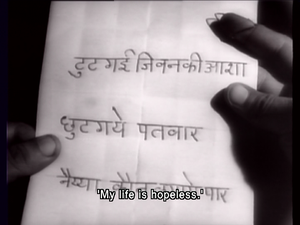 टुट गई जिवन की आशा
छुट गये पतवार
नैय्या कौन
पार
'My life is hopeless.'